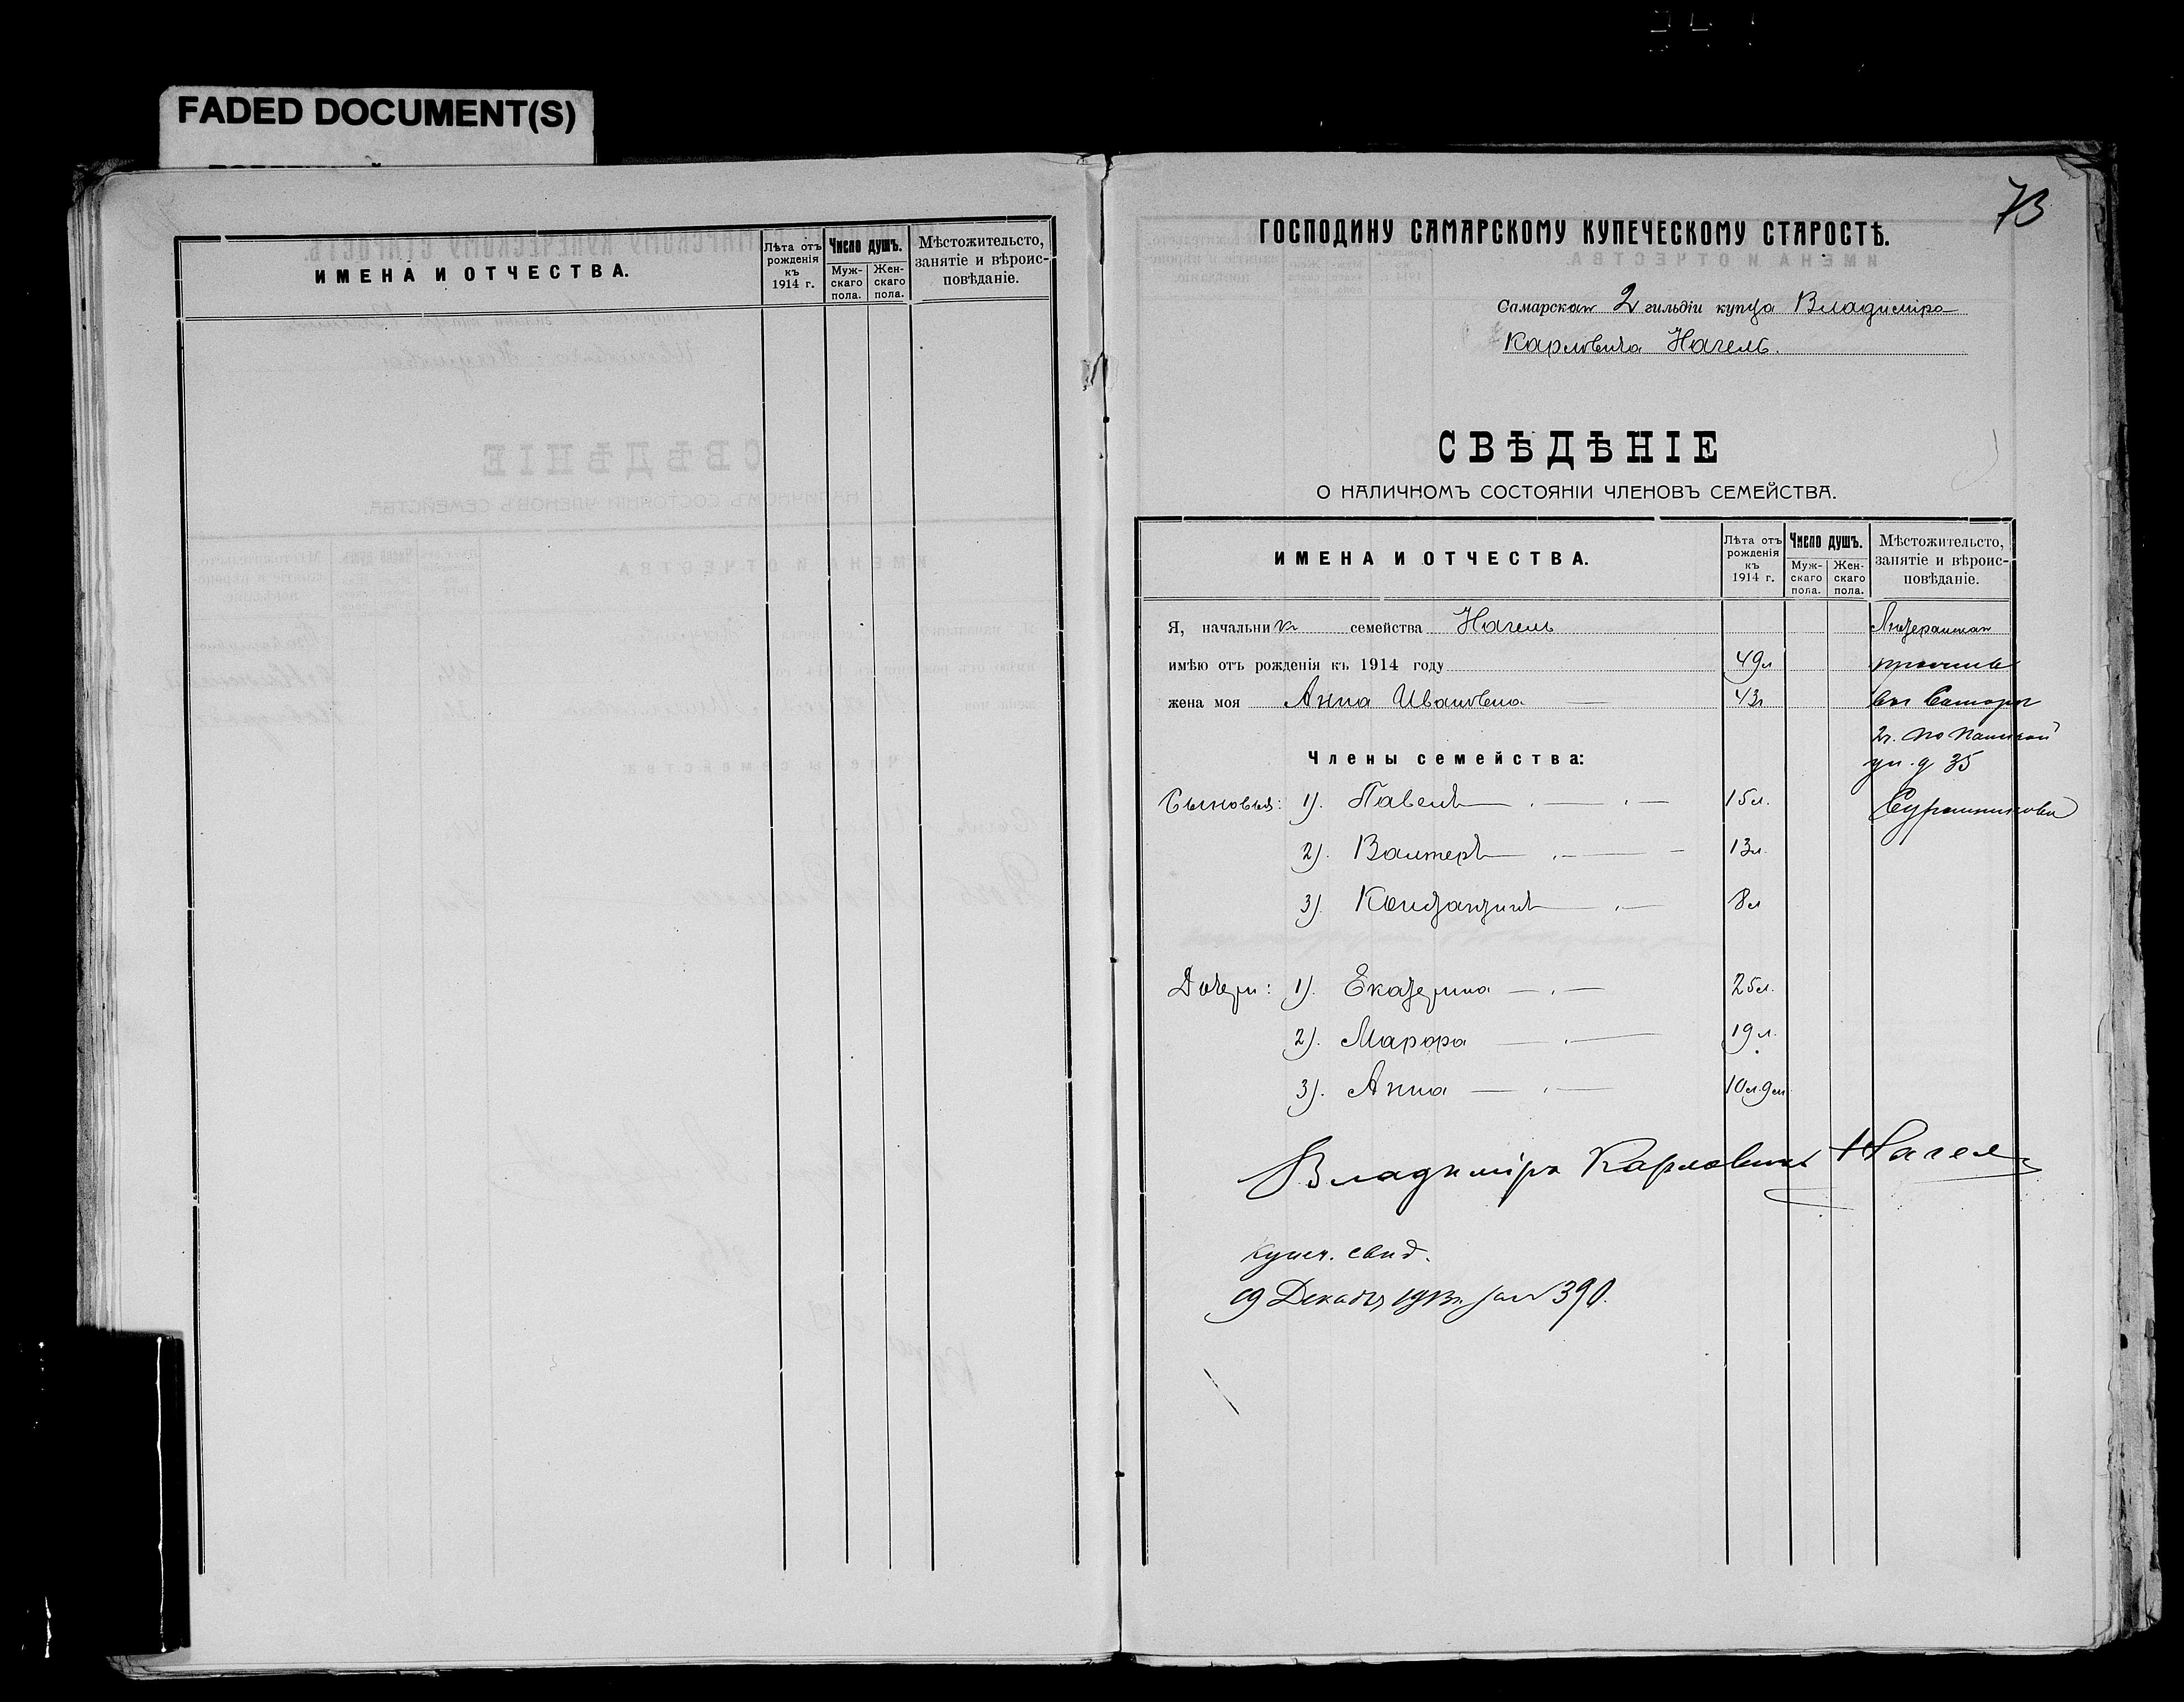 FADED DOCUMENT(S)
ИМЕНА И ОТЧЕСТВА.
Лѣта отъ рожденія къ 1914 г.
Число душъ.
Муж-скаго пола.
Жен-скаго пола.
Мѣстожительсто, занятіе и вѣроис-повѣданіе.
73
ГОСПОДИНУ САМАРСКОМУ КУПЕЧЕСКОМУ СТАРОСТѢ.
Самарскаго 2 гильдіи купца Владиміра
Карловича Нагель.
СВѢДѢНІЕ
О НАЛИЧНОМЪ СОСТОЯНІИ ЧЛЕНОВЪ СЕМЕЙСТВА.
ИМЕНА И ОТЧЕСТВА.
Лѣта отъ рожденія къ 1914 г.
Число душъ.
Муж-скаго пола.
Жен-скаго пола.
Мѣстожительсто, занятіе и вѣроис-повѣданіе.
Я, начальникъ семейства Нагель
имѣю отъ рожденія къ 1914 году 49л
жена моя Анна Ивановна 43г
въ Самарѣ
2ч. по
Члены семейства:
ул. д 35
Сыновья: 1). Павелъ 15л.
Сурошникова
2). Валтеръ 13л.
3). Константинъ 8л
Дочери: 1). Екатерина 25л.
2). 19л.
3). Анна 10л.9м
Владиміръ Карловичъ Нагель
купеч. свид.
19 Декабря 1913г за № 390.